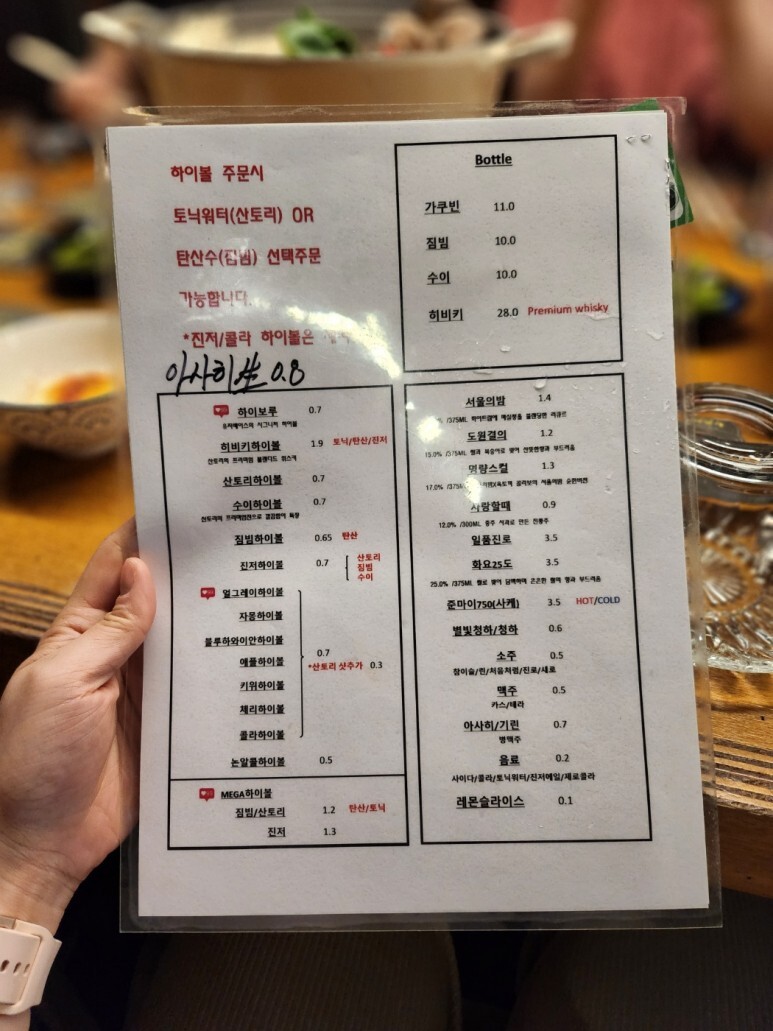 하이볼 주문시
토닉워터(산토리) OR
탄산수(짐빔) 선택주문
가능합니다.
*진저/콜라 하이볼은
아사히生 0.8
Bottle
가쿠빈 11.0
짐빔 10.0
수이 10.0
히비키 28.0 Premium whisky
하이보루 0.7
시그니처 하이볼
히비키하이볼 1.9 토닉/탄산/진저
산토리의 프리미엄 블렌디드 위스키
산토리하이볼 0.7
수이하이볼 0.7
산토리의 프리미엄진으로 깔끔함이 특징
짐빔하이볼 0.65 탄산
진저하이볼 0.7 산토리
짐빔
수이
얼그레이하이볼
자몽하이볼
블루하와이안하이볼
애플하이볼 0.7
*산토리 샷추가 0.3
키위하이볼
체리하이볼
콜라하이볼
논알콜하이볼 0.5
MEGA하이볼
짐빔/산토리 1.2 탄산/토닉
진저 1.3
서울의밤 1.4
/375ML
도원결의 1.2
15.0% /375ML 쌀과 복숭아로 빚어 부드러움
명량스컬 1.3
17.0%
사랑할때 0.9
12.0% /300ML 충주 사과로 만든 전통주
일품진로 3.5
화요25도 3.5
25.0% /375ML 쌀로 빚어 담백하며 은은한 쌀의 향과 부드러움
준마이750(사케) 3.5 HOT/COLD
별빛청하/청하 0.6
소주 0.5
참이슬/린/처음처럼/진로/새로
맥주 0.5
카스/테라
아사히/기린 0.7
병맥주
음료 0.2
사이다/콜라/토닉워터/진저에일/제로콜라
레몬슬라이스 0.1